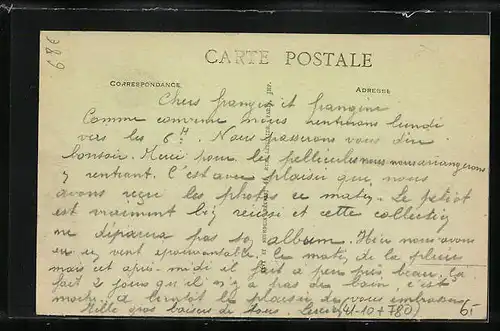 68c
CARTE POSTALE
CORRESPONDANCE
ADRESSE
Chers frangin et frangine
Comme convenu nous rentrerons lundi
vers les 6H. Nous passerons vous dire
bonsoir. Merci pour les pellicules nous nous arrangerons
y rentrant. C'est avec plaisir que nous
avons reçu les photos ce matin. Le petiot
est vraiment bien réussi et cette collection
ne déparera pas son album. Hier nous avons
eu un vent épouvantable, le matin de la pluie
mais cet après-midi il fait à peu près beau. Ça
fait 2 jours qu'il n'y a pas de bain, c'est
moche. à bientôt le plaisir de vous embrasser
Mille gros baisers de tous.